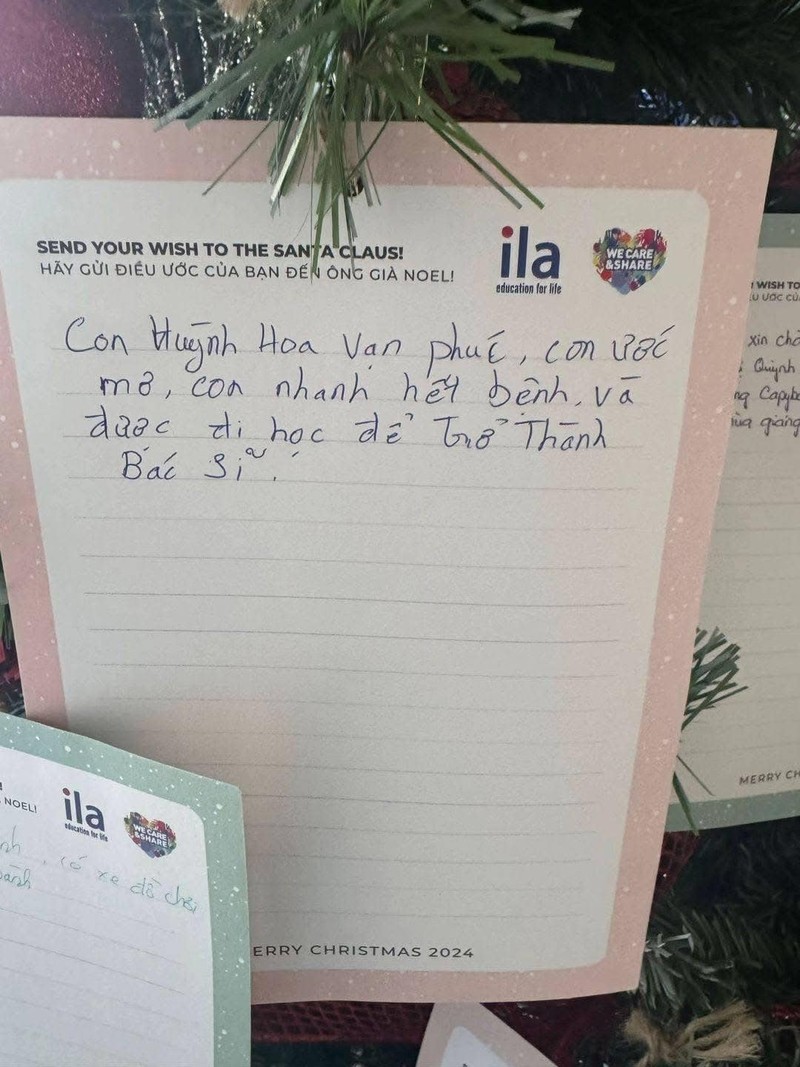 SEND YOUR WISH TO THE SANTA CLAUS!
HÃY GỬI ĐIỀU ƯỚC CỦA BẠN ĐẾN ÔNG GIÀ NOEL!
ila
education for life
WE CARE
&SHARE
Con Huỳnh Hoa Vạn phúc, con ước
mơ, con nhanh hết bệnh, và
được đi học để Trở Thành
Bác Sĩ.
MERRY CHRISTMAS 2024
WISH TO
xin
Quỳnh
MERRY
NOEL!
ila
education for life
WE CARE
&SHARE
có xe đồ chơi